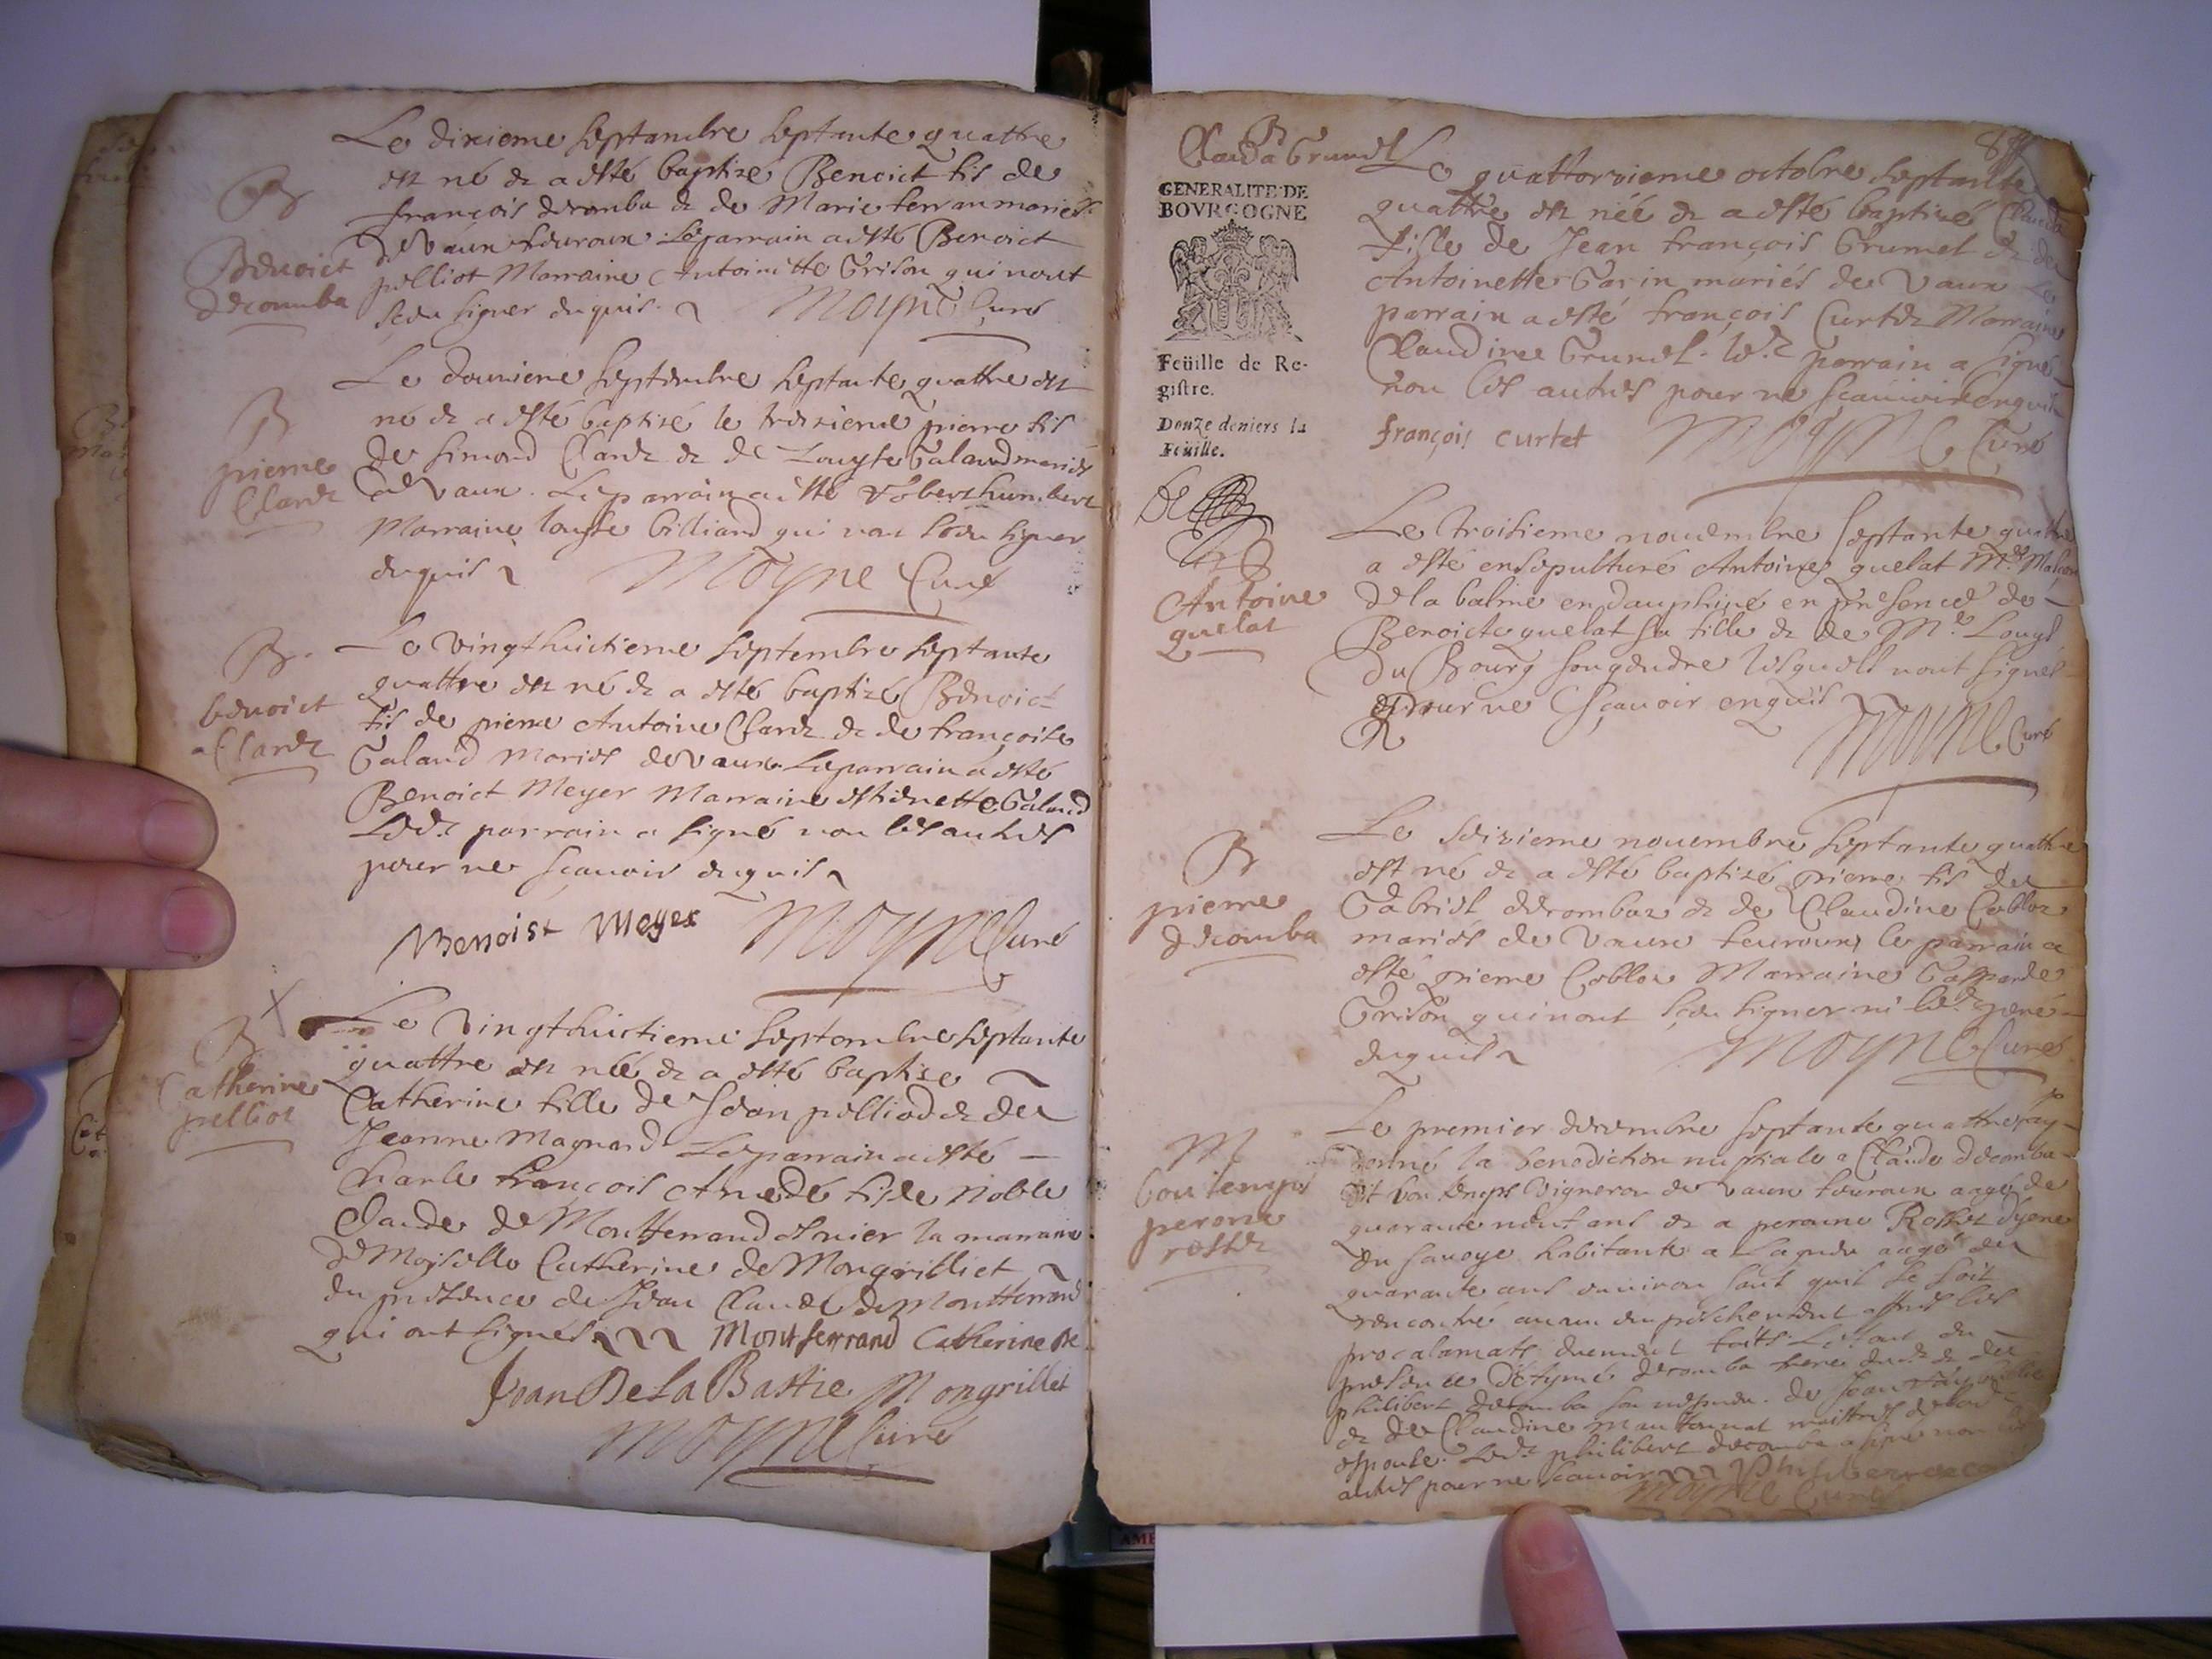 Le dixieme septambre septante quattre
est né & a esté baptizé Benoict fils de
françois decomba & de Marie ferran mariés
de Vaux fevroux. Le parrain a esté Benoict
pelliot Marraine Antoinette Grison qui n'ont
sçeu signer enquis. Moyne Curé
B
Benoict
decomba
Le douzieme septembre septante quattre est
né & a esté baptizé le treizieme pierre fils
de simond Clard & de Louyse Galand mariés
de Vaux. Le parrain a esté robert humbert
Marraine louyse billiard qui n'ont sceu signer
enquis Moyne Curé
B
pierre
Clard
Le vingthuictieme septembre septante
quattre est né & a esté baptizé Benoict
fils de pierre Antoine Clard & de françoise
Galand mariés de Vaux. Le parrain a esté
Benoict Meyer Marraine estienette Galand
Led. parrain a signé non les autres
pour ne sçauoir enquis
Benoist Meyer Moyne Curé
B.
benoict
Clard
Le vingthuictieme septembre septante
quattre est née & a esté baptizé
Catherine fille de Jean pelliod & de
Jeanne Magnard Le parrain a esté
Charle françois Amedé fils de Noble
Claude de Montferrand la marraine
de Moyselle Catherine de Mongrilliet
en presence de Jean Claude de Montferrand
qui ont signés Montferrand Catherine De
Jean De La Bastie Mongrillet
Moyne Curé
X
B
Catherine
pelliot
B
Clauda Grumel
GENERALITE DE
BOVRGOGNE
Feüille de Re-
gistre.
Douze deniers la
Feüille.
Le quattorzieme octobre septante
quattre est née & a esté baptizé Clauda
fille de Jean françois Grumel & de
Antoinette Garin mariés de Vaux Le
parrain a esté françois Curtet Marraine
Claudine Grumel. led. parrain a signé
non les autres pour ne scauoir enquis
françois curtet Moyne Curé
Antoine
quelat
Le troisieme nouembre septante quattre
a esté ensepulturé Antoine quelat Me Masson
de la balme en dauphiné en presence de
Benoicte quelat sa fille & de Me Louys
du Bourg son gendre lesquels n'ont signés
pour ne Sçauoir enquis
Moyne Curé
B
pierre
decomba
Le seizieme nouembre septante quattre
est né & a esté baptizé pierre fils de
Gabriel decombaz & de Claudine Cobloz
mariés de Vaux feuroux, le parrain a
esté pierre Cobloz Marraine Gasparde
Grison qui n'ont sçeu signer ni led. pere
enquis Moyne Curé
M
bontemps
perone
rosset
Le premier decembre septante quattre j'ay
donné la benediction nuptiale a Claude decomba
dit bon temps Vigneron de vaux feuroux aagé de
quarante neuf ans & a perone Rosset d'yene
en sauoye habitante a Lagneu aagé de
quarante ans enuiron sans quil se soit
rencontré aucun empeschement apres les
proclamats duement faits Le tout en
presence d'etyene decomba frere dud. & de
philibert decomba son nepueu. de Jean
& de Claudine maistres de lad.
espouse. Led. philibert decomba a signé non les
autres pour ne scauoir
Moyne Curé